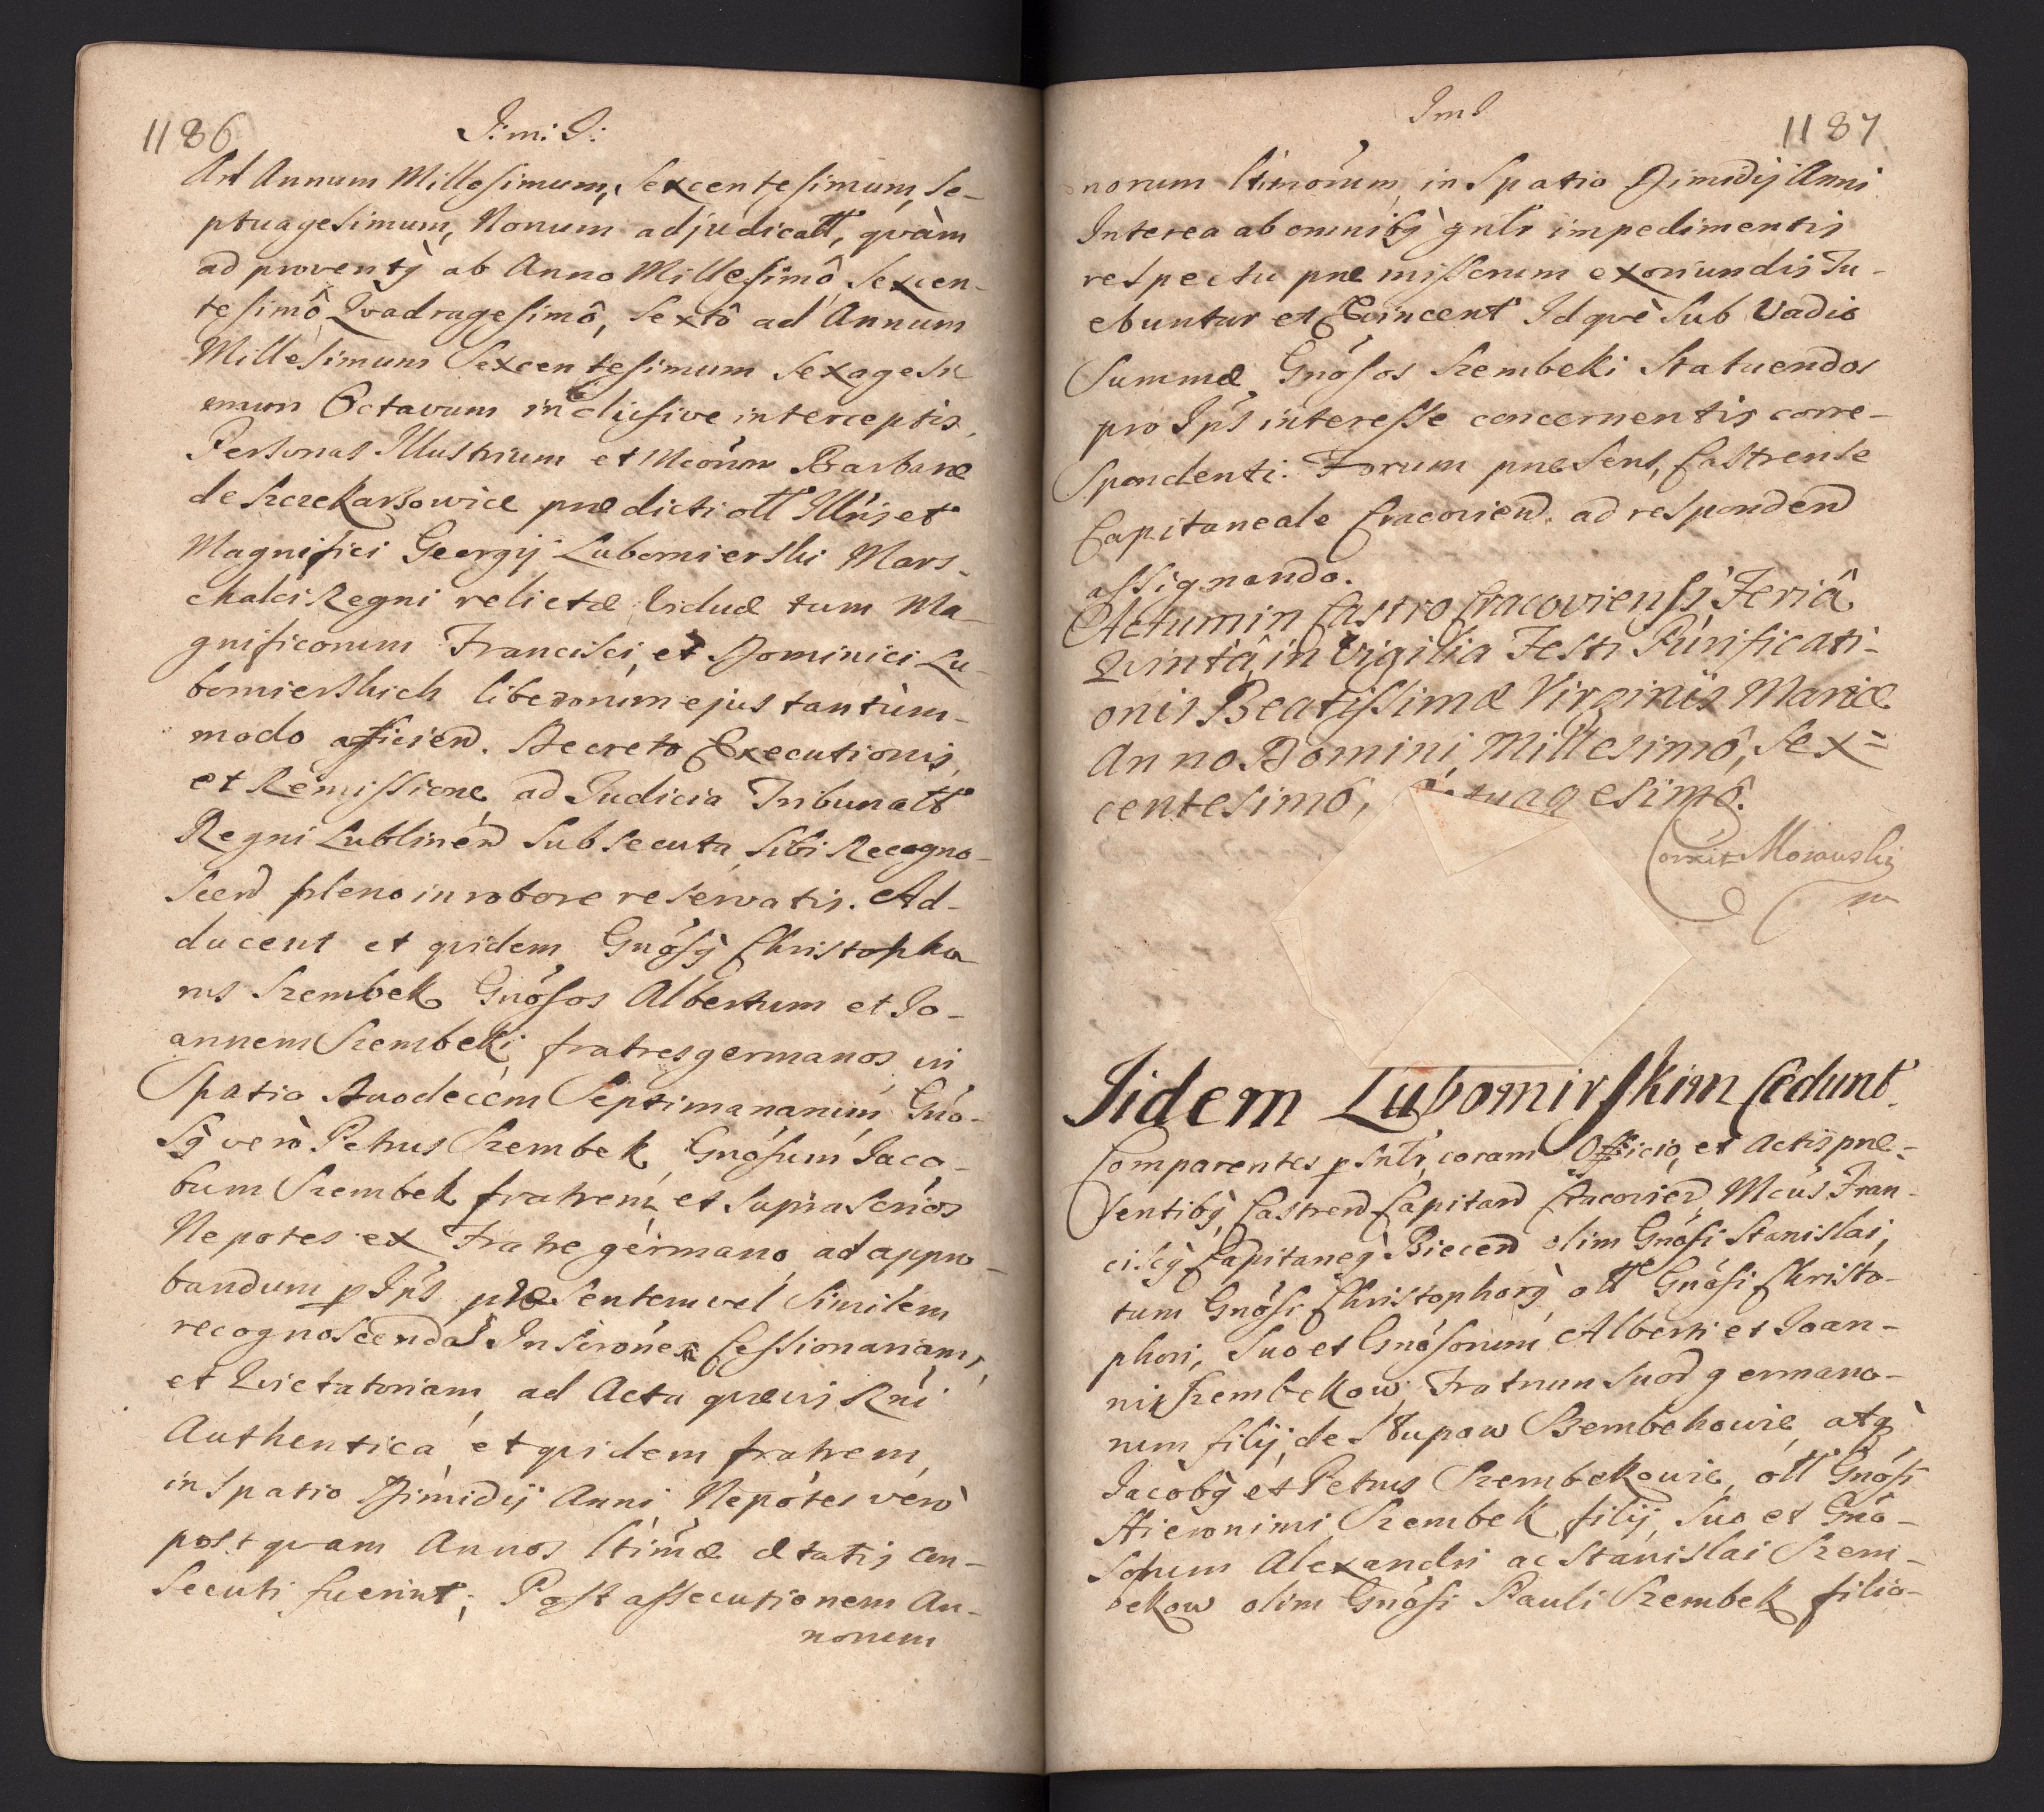 1186
J: m: J:
Ad Annum Millesimum, Sexcentesimum, Se-
ptuagesimum, Nonum adjudicatt, qvàm
ad proventꝫ ab Anno Millesimô Sexcen-
tesimô Qvadragesimô, Sextô ad Annum
Millesimum Sexcentesimum Sexagesi
mum Octavum inclusive interceptis,
Personas Illustrium et Mcorum Barbaræ
de Szczekarzowice prædicti ott Illris et
Magnifici Georgij Lubomierski Mars-
chalci Regni relictæ Viduæ tum Ma-
gnificorum Francisci, et Dominici Lu-
bomierskich liberorum ejus tantùm-
modo afficien. Decreto Executionis,
et Remissione ad Judicia Tribunalt
Regni Lublinen subsecuta, sibi Recogno-
scen pleno in robore reservatis. Ad-
ducent et qvidem Gnosꝫ Christopho
rus Szembek Gnosos Albertum et Jo-
annem Szembeki fratres germanos in
Spatio Duodecem Septimanarum Gno-
sꝫ verò Petrus Szembek Gnosum Jaco-
bum Szembek fratrem et suprascrios
Nepotes ex Fratre germano ad appro-
bandum p Ips præsentem vel similem
recognoscenda Inscrone Cessionariam,
et Qvietatoriam ad Acta qvævis Rni
Authentica et qvidem fratrem
in spatio Dimidij Anni Nepotes verò
postqvam Annos ltimæ ætatis con-
secuti fuerint; Post assecutionem An-
norum
Im J
1187
norum ltimorum in Spatio Dimidij Anni
Interea ab omnibꝫ gnlr impedimentis
respectu præmissorum exoriundis Tu-
ebuntur et Evincent Idqvè sub Vadio
Summæ Gnosos Szembeki Statuendos
pro Ips interesse concernentis corre-
spondenti. Forum præsens, Castrense
Capitaneale Cracovien. ad responden
assignando.
Actum in Castro Cracoviensi Feriâ
Qvintâ, in Vigilia Festi Purificati-
onis Beatissimæ Virginis Mariæ
Anno Domini Millesimô, Sex=
centesimô, esimô.
Morawski
Iidem Lubomirskim Cedunt
Comparentes psnlr coram Officio, et Actis præ-
sentibꝫ Castren Capitan Cracovien, Mcus Fran-
ciscꝫ Capitaneꝫ Biecen olim Gnosi Stanislai,
tum Gnosi Christophorꝫ ott Gnosi Christo-
phori, suo et Gnosorum Alberti et Joan-
nis Szembekow Fratrum suor germano-
rum filij, de Słupow Szembekowie, atqꝫ
Jacobꝫ et Petrus Szembekowie, ott Gnosi
Hieronimi Szembek filij, suo et Gno-
sorum Alexandri ac Stanislai Szem-
bekow olim Gnosi Pauli Szembek filio-